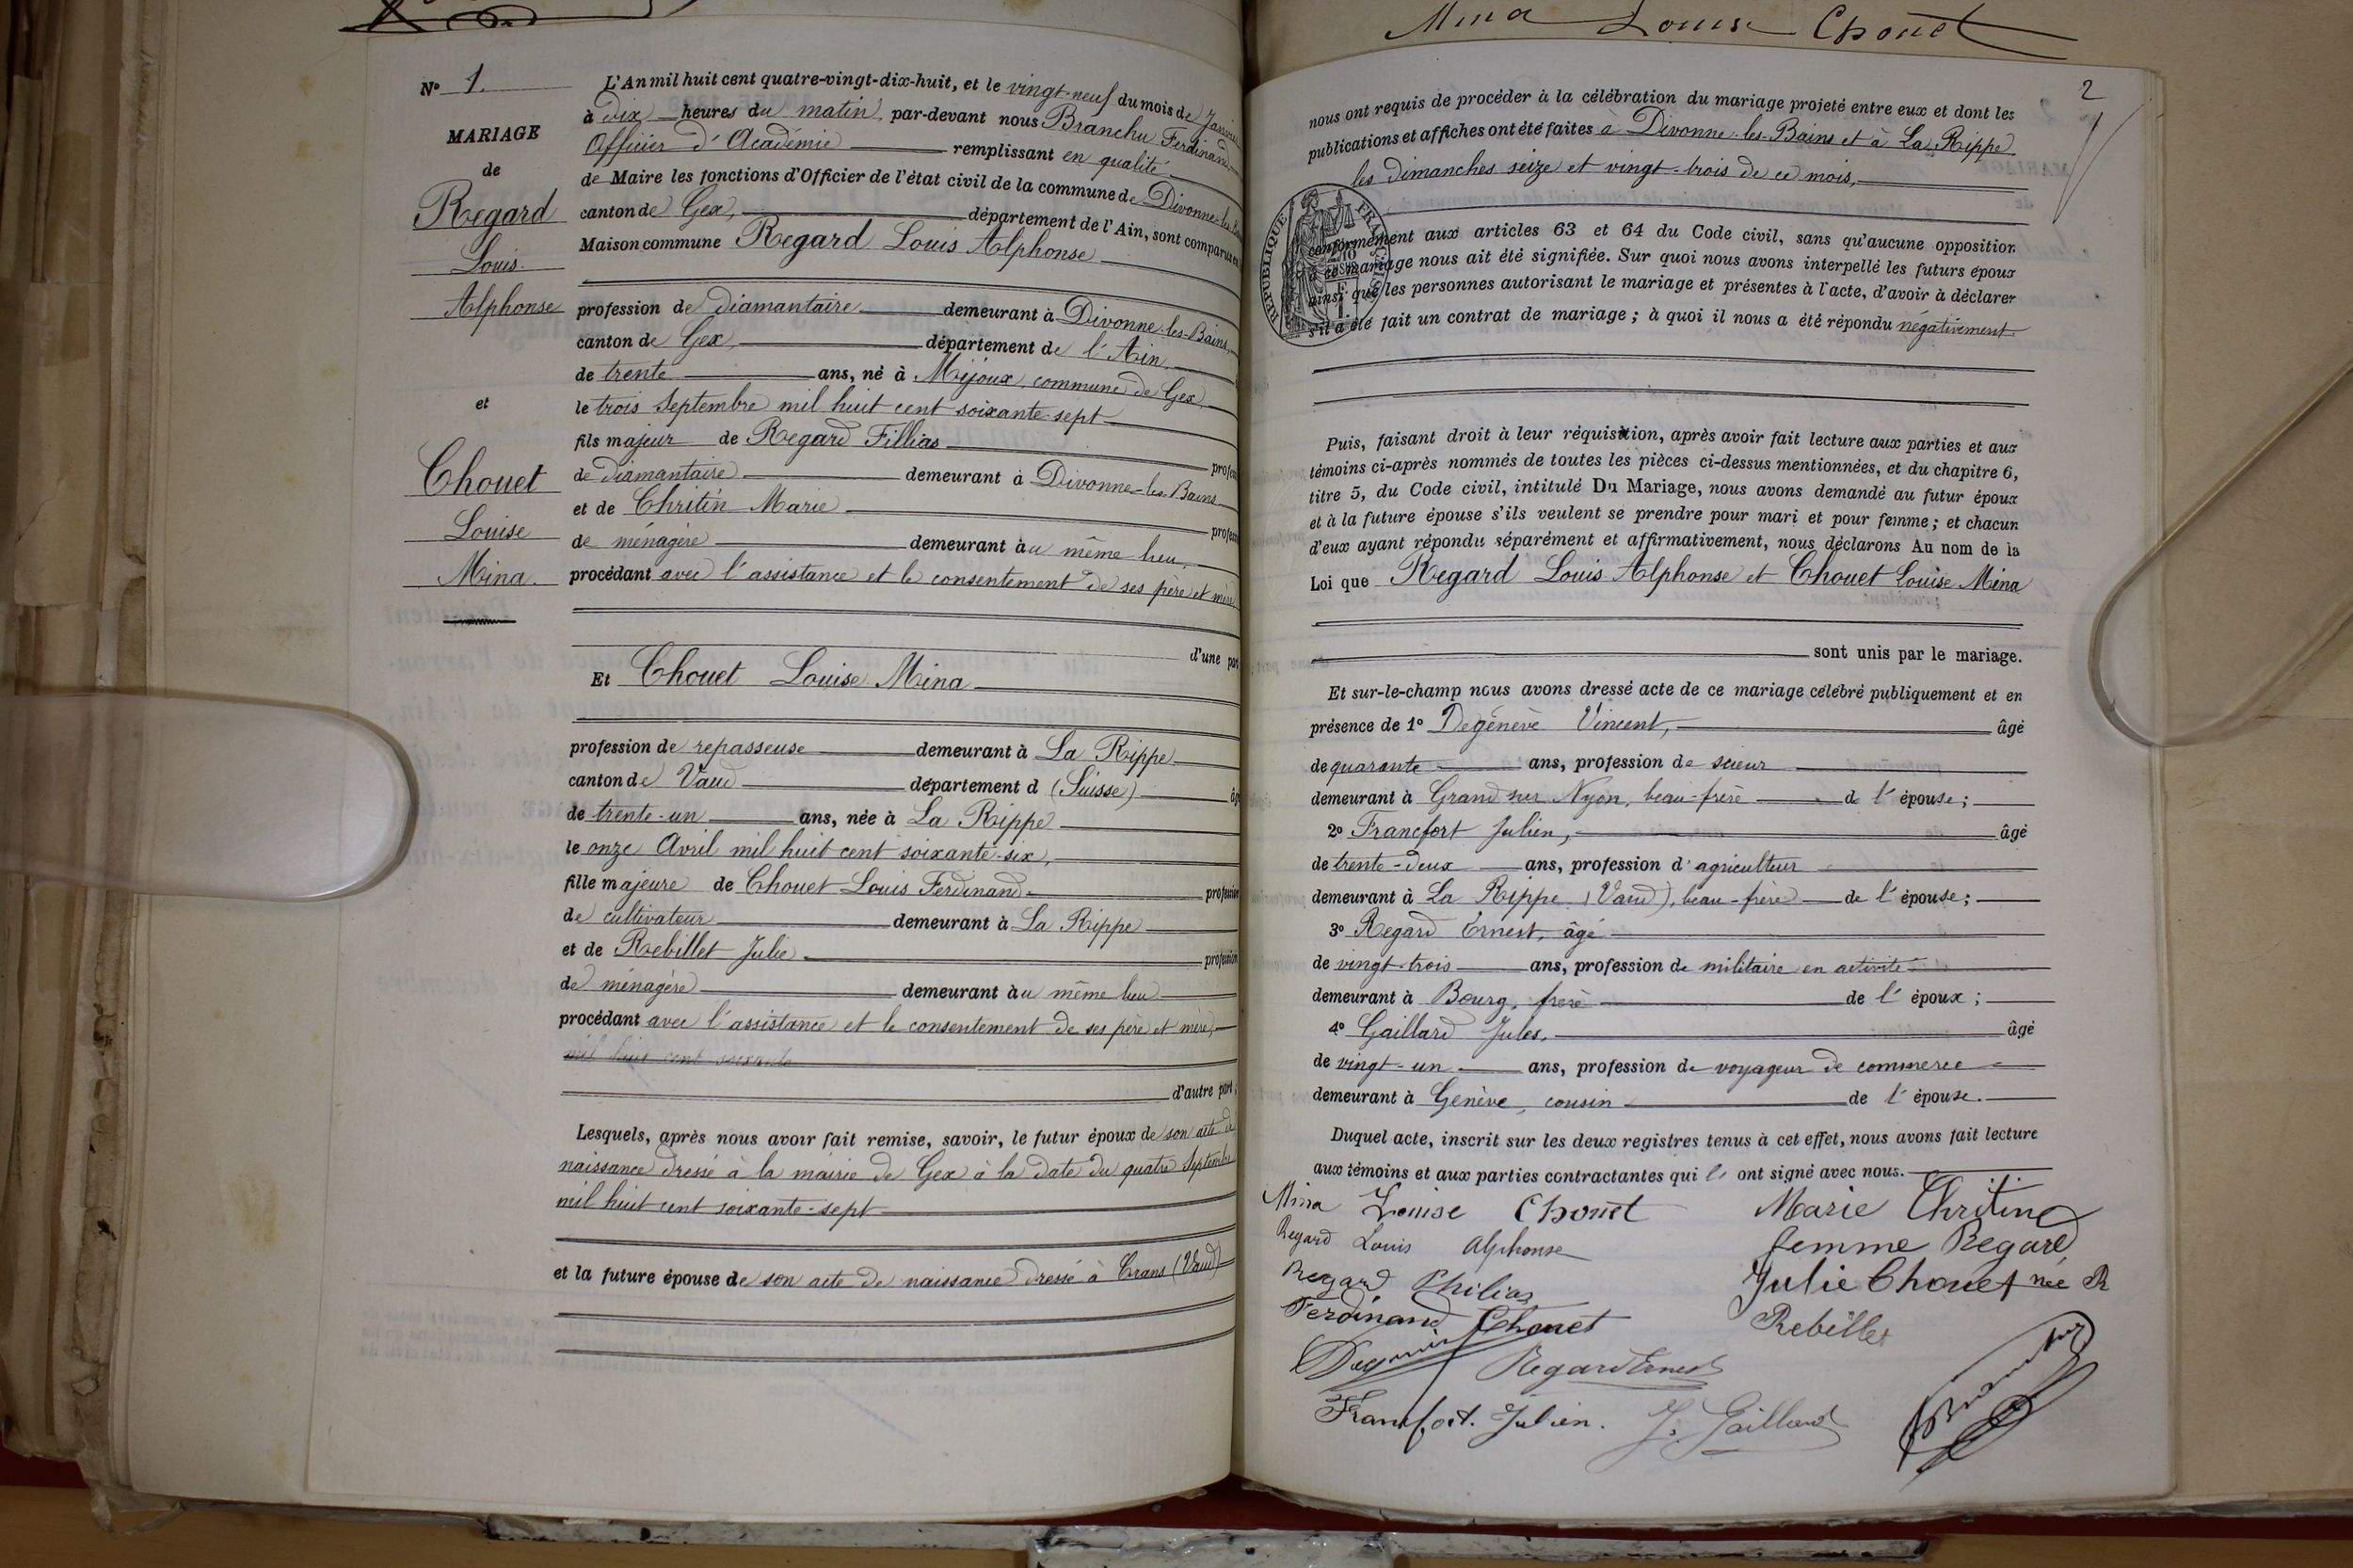 Mina Louise Chouet
Nº 1.
MARIAGE
de
Regard
Louis
Alphonse
et
Chouet
Louise
Mina.
L'An mil huit cent quatre-vingt-dix-huit, et le vingt-neuf du mois de Janvier
à dix heures du matin, par-devant nous Branchu Ferdinand,
Officier d'Académie remplissant en qualité
de Maire les fonctions d'Officier de l'état civil de la commune de Divonne-les-Bains
canton de Gex, département de l'Ain, sont comparus en
Maison commune Regard Louis Alphonse
profession de diamantaire demeurant à Divonne-les-Bains,
canton de Gex, département de l'Ain,
de trente ans, né à Mijoux, commune de Gex,
le trois Septembre mil huit cent soixante-sept
fils majeur de Regard Fillias profess
de diamantaire demeurant à Divonne-les-Bains
et de Chritin Marie profess
de ménagère demeurant àu même lieu,
procédant avec l'assistance et le consentement de ses père et mère,
d'une part
Et Chouet Louise Mina
profession de repasseuse demeurant à La Rippe
canton de Vaud département d (Suisse) âg
de trente-un ans, née à La Rippe
le onze Avril mil huit cent soixante-six,
fille majeure de Chouet Louis Ferdinand profession
de cultivateur demeurant à La Rippe
et de Rebillet Julie profession
de ménagère demeurant àu même lieu
procédant avec l'assistance et le consentement de ses père et mère,
mil huit cent soixante
d'autre part;
Lesquels, après nous avoir fait remise, savoir, le futur époux de son acte de
naissance dressé à la mairie de Gex à la date du quatre Septembre
mil huit cent soixante-sept
et la future épouse de son acte de naissance dressé à Crans (Vaud)
2
nous ont requis de procéder à la célébration du mariage projeté entre eux et dont les
publications et affiches ont été faites à Divonne-les-Bains et à La Rippe
les dimanches seize et vingt-trois de ce mois,
RÉPUBLIQUE FRANÇAISE
conformément aux articles 63 et 64 du Code civil, sans qu'aucune opposition
à ce mariage nous ait été signifiée. Sur quoi nous avons interpellé les futurs époux
ainsi que les personnes autorisant le mariage et présentes à l'acte, d'avoir à déclarer
s'il a été fait un contrat de mariage; à quoi il nous a été répondu négativement.
Puis, faisant droit à leur réquisition, après avoir fait lecture aux parties et aux
témoins ci-après nommés de toutes les pièces ci-dessus mentionnées, et du chapitre 6,
titre 5, du Code civil, intitulé Du Mariage, nous avons demandé au futur époux
et à la future épouse s'ils veulent se prendre pour mari et pour femme; et chacun
d'eux ayant répondu séparément et affirmativement, nous déclarons Au nom de la
Loi que Regard Louis Alphonse et Chouet Louise Mina
sont unis par le mariage.
Et sur-le-champ nous avons dressé acte de ce mariage célébré publiquement et en
présence de 1º Degénève Vincent, âgé
de quarante ans, profession de scieur
demeurant à Grand sur Nyon, beau-frère de l'épouse;
2º Francfort Julien, âgé
de trente-deux ans, profession d'agriculteur
demeurant à La Rippe (Vaud), beau-frère de l'épouse;
3º Regard Ernest, âgé
de vingt-trois ans, profession de militaire en activité
demeurant à Bourg, frère de l'époux;
4º Gaillard Jules, âgé
de vingt-un ans, profession de voyageur de commerce
demeurant à Genève, cousin de l'épouse.
Duquel acte, inscrit sur les deux registres tenus à cet effet, nous avons fait lecture
aux témoins et aux parties contractantes qui l' ont signé avec nous.
Mina Louise Chouet
Marie Chritine
Regard Louis Alphonse
femme Regard
Regard Philias
Julie Chouet née R
Ferdinand Chouet
Rebillet
Regard Ernest
Francfort. Julien.
J. Gaillard